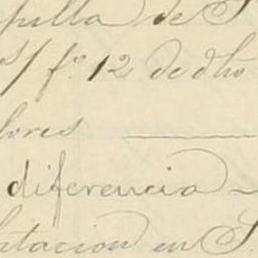 pilla de S
s/ fo. 12 de dho
lores
diferencia
tacion en S.